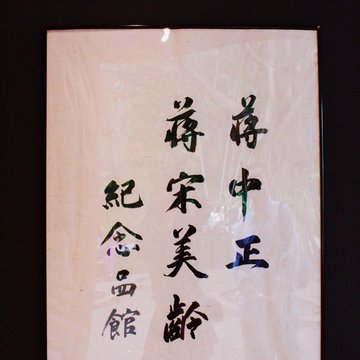 蔣中正
蔣宋美齡
紀念品館